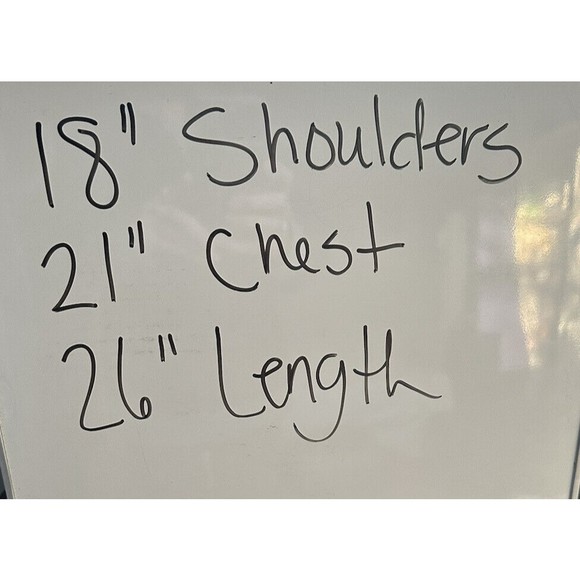 18" Shoulders
21" Chest
26" Length